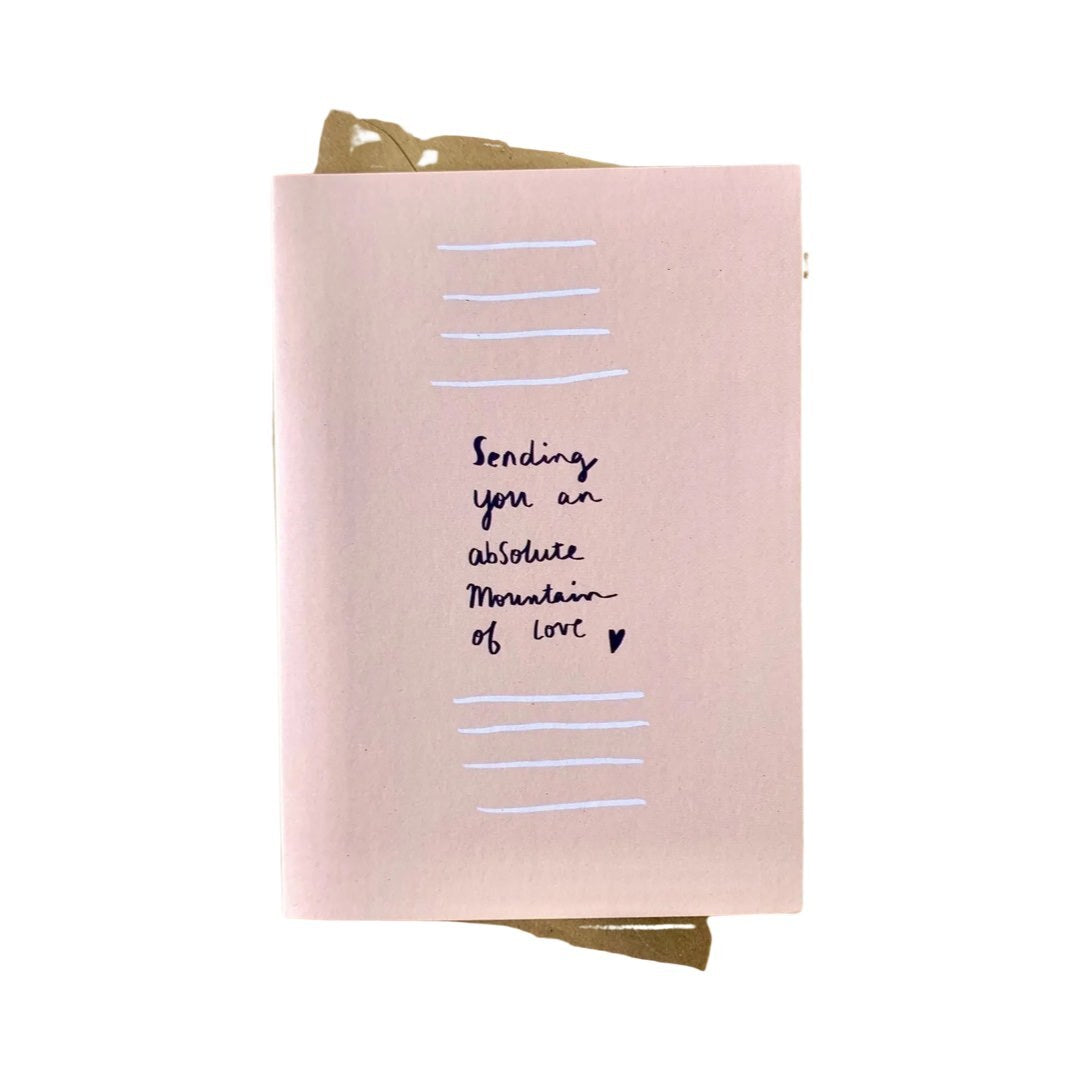 Sending
you an
absolute
Mountain
of love